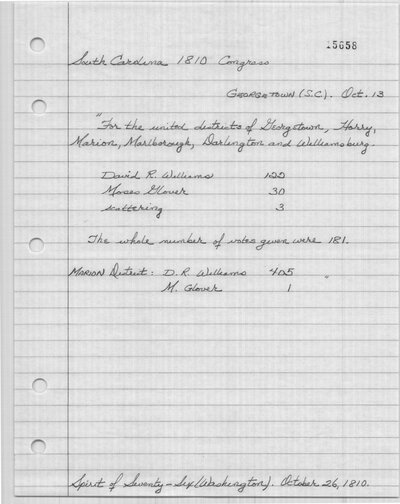 15658
South Carolina 1810 Congress
GEORGETOWN (S.C). Oct. 13
"For the united districts of Georgetown, Horry,
Marion, Marlborough, Darlington and Williamsburg.
David R. Williams
Moses Glover 30
scattering 3
The whole number of votes given were 181.
MARION District: D. R. Williams 405 "
M. Glover 1
Spirit of Seventy-Six (Washington). October 26, 1810.